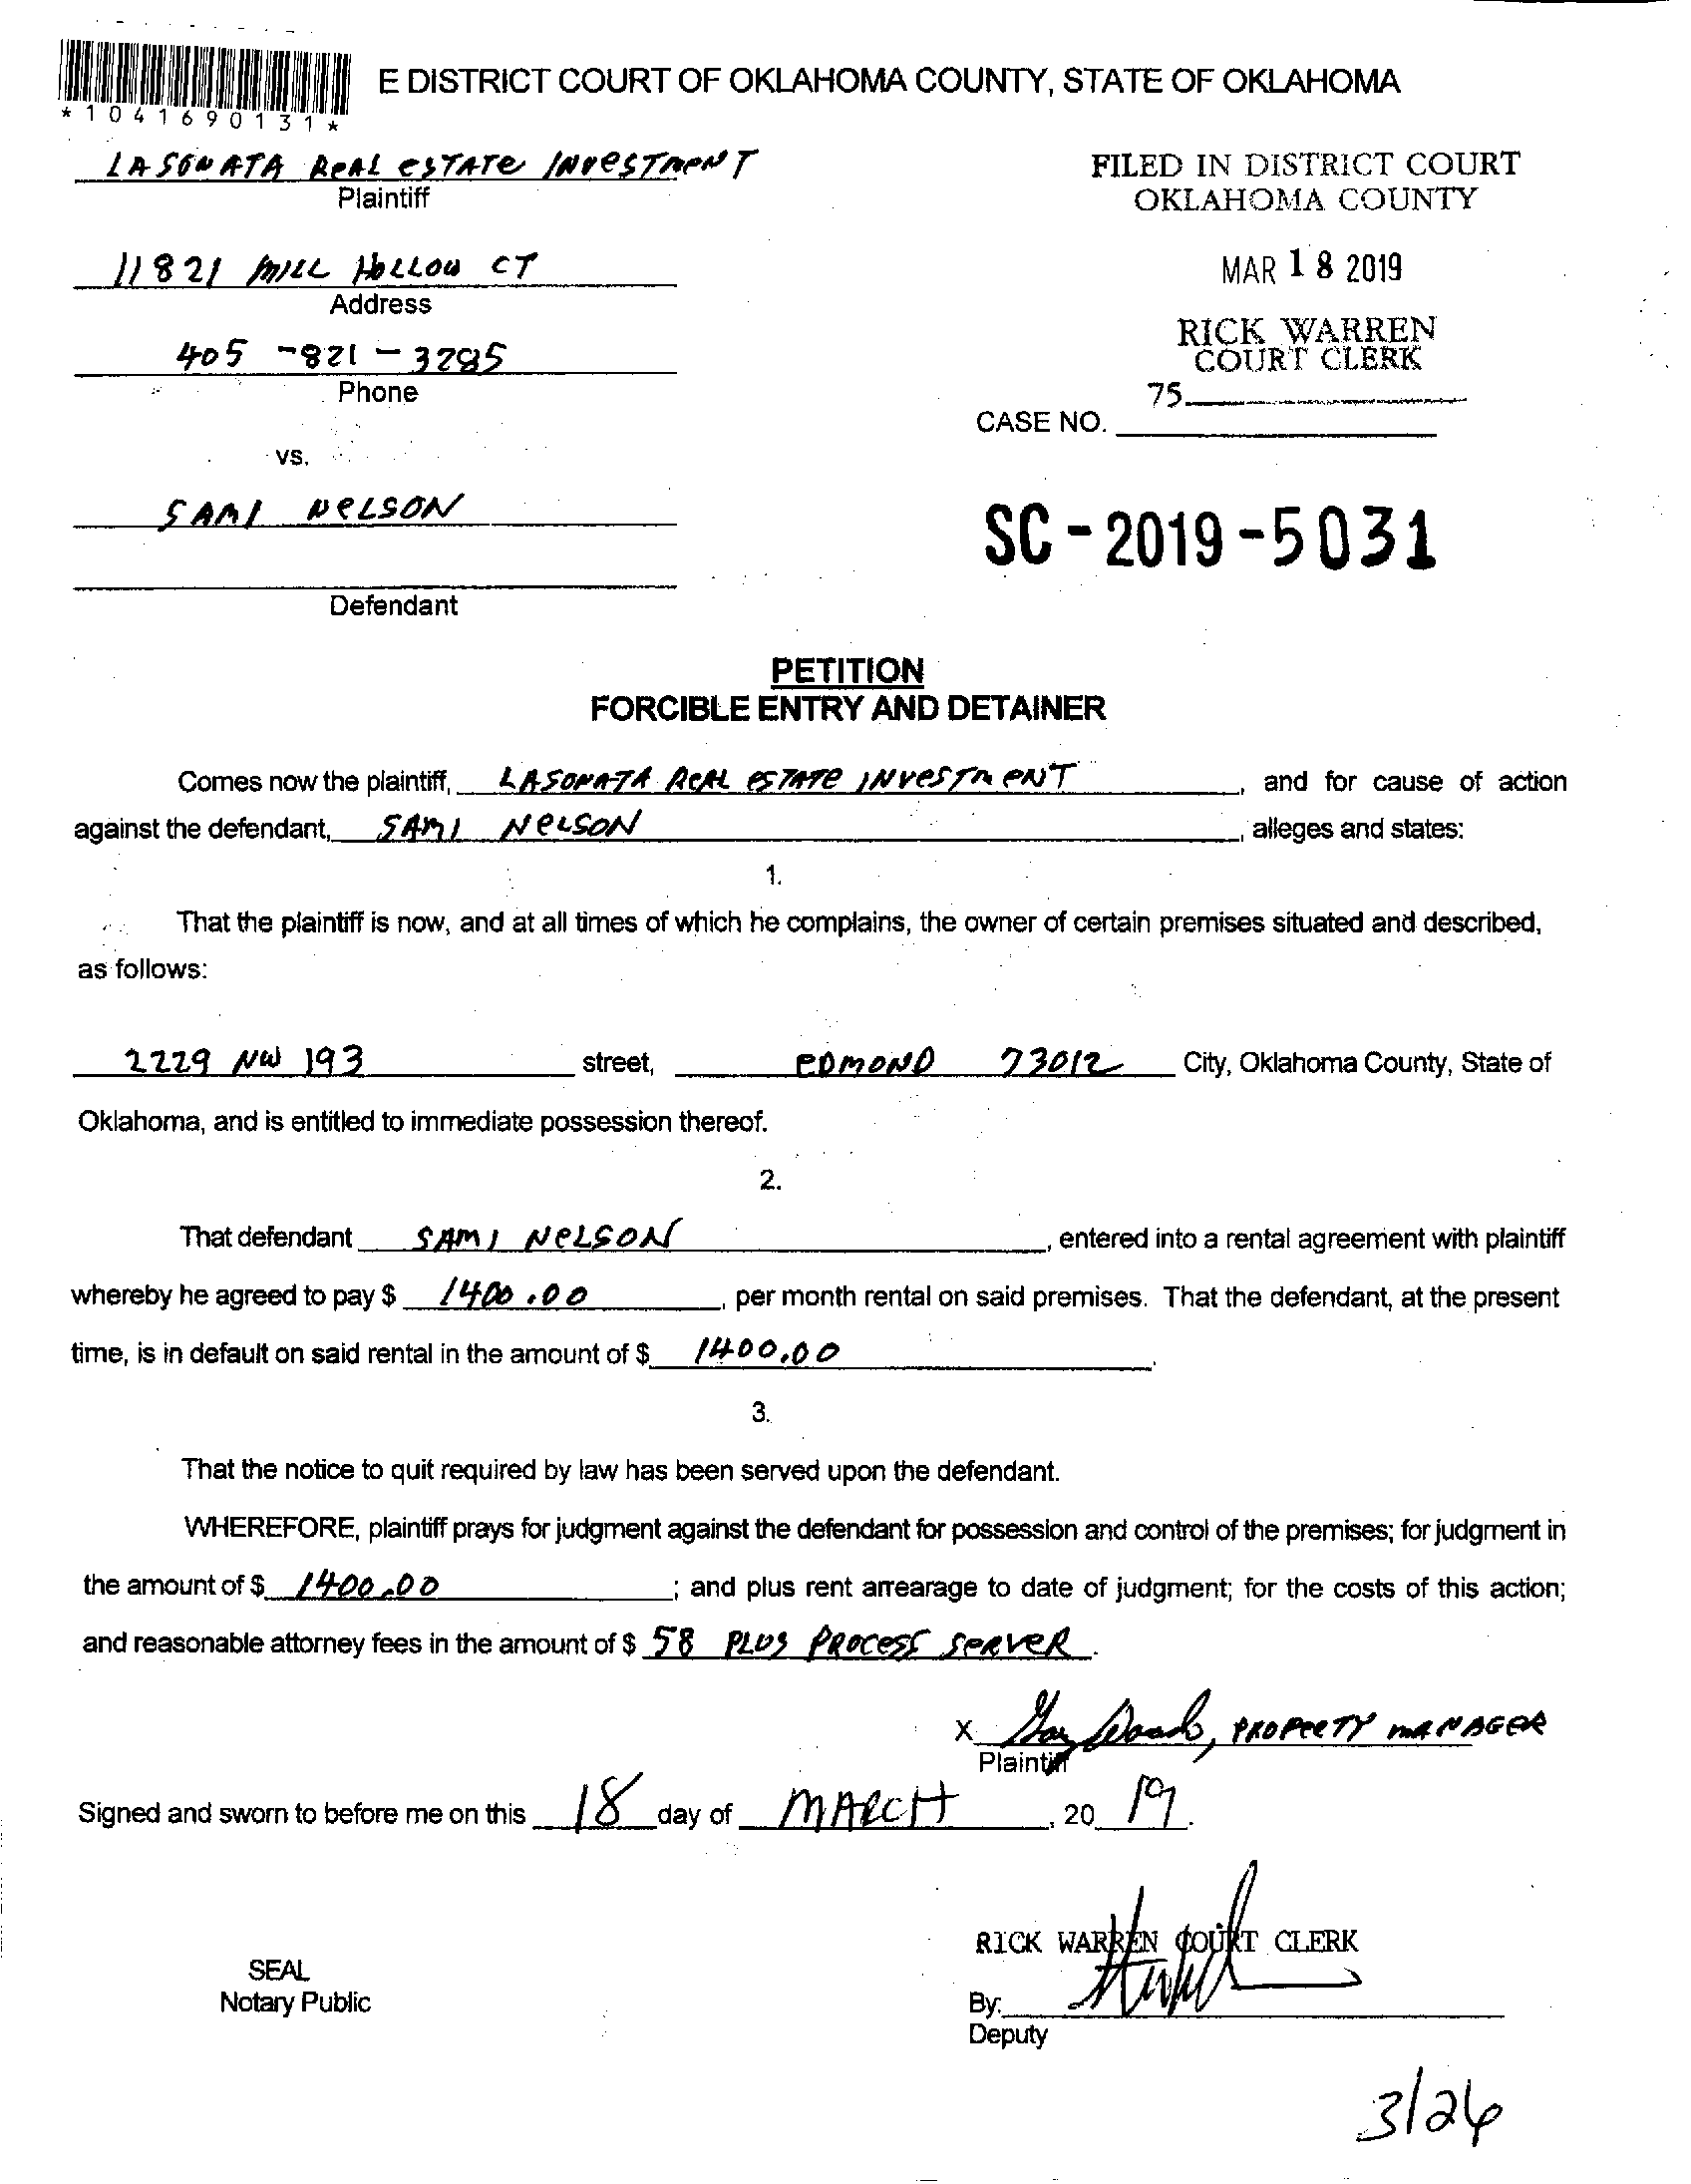 E DISTRICT COURT OF OKLAHOMA COUNTY, STATE OF OKLAHOMA
*1041690131*
LASONATA REAL ESTATE INVESTMENT
Plaintiff
FILED IN DISTRICT COURT
OKLAHOMA COUNTY
11821 MILL HOLLOW CT
Address
MAR 18 2019
405-821-3285
Phone
RICK WARREN
COURT CLERK
75
CASE NO.
vs.
SAMI NELSON
SC-2019-5031
Defendant
PETITION
FORCIBLE ENTRY AND DETAINER
Comes now the plaintiff, LASONATA REAL ESTATE INVESTMENT, and for cause of action
against the defendant, SAMI NELSON, alleges and states:
1.
That the plaintiff is now, and at all times of which he complains, the owner of certain premises situated and described,
as follows:
2229 NW 193 street, EDMOND 73012 City, Oklahoma County, State of
Oklahoma, and is entitled to immediate possession thereof.
2.
That defendant SAMI NELSON, entered into a rental agreement with plaintiff
whereby he agreed to pay $ 1400.00, per month rental on said premises. That the defendant, at the present
time, is in default on said rental in the amount of $ 1400.00.
3.
That the notice to quit required by law has been served upon the defendant.
WHEREFORE, plaintiff prays for judgment against the defendant for possession and control of the premises; for judgment in
the amount of $ 1400.00; and plus rent arrearage to date of judgment; for the costs of this action;
and reasonable attorney fees in the amount of $ 58 PLUS PROCESS SERVER.
X , PROPERTY MANAGER
Plaintiff
Signed and sworn to before me on this 18 day of MARCH, 2019.
RICK WARREN COURT CLERK
SEAL
Notary Public
By:
Deputy
3/26